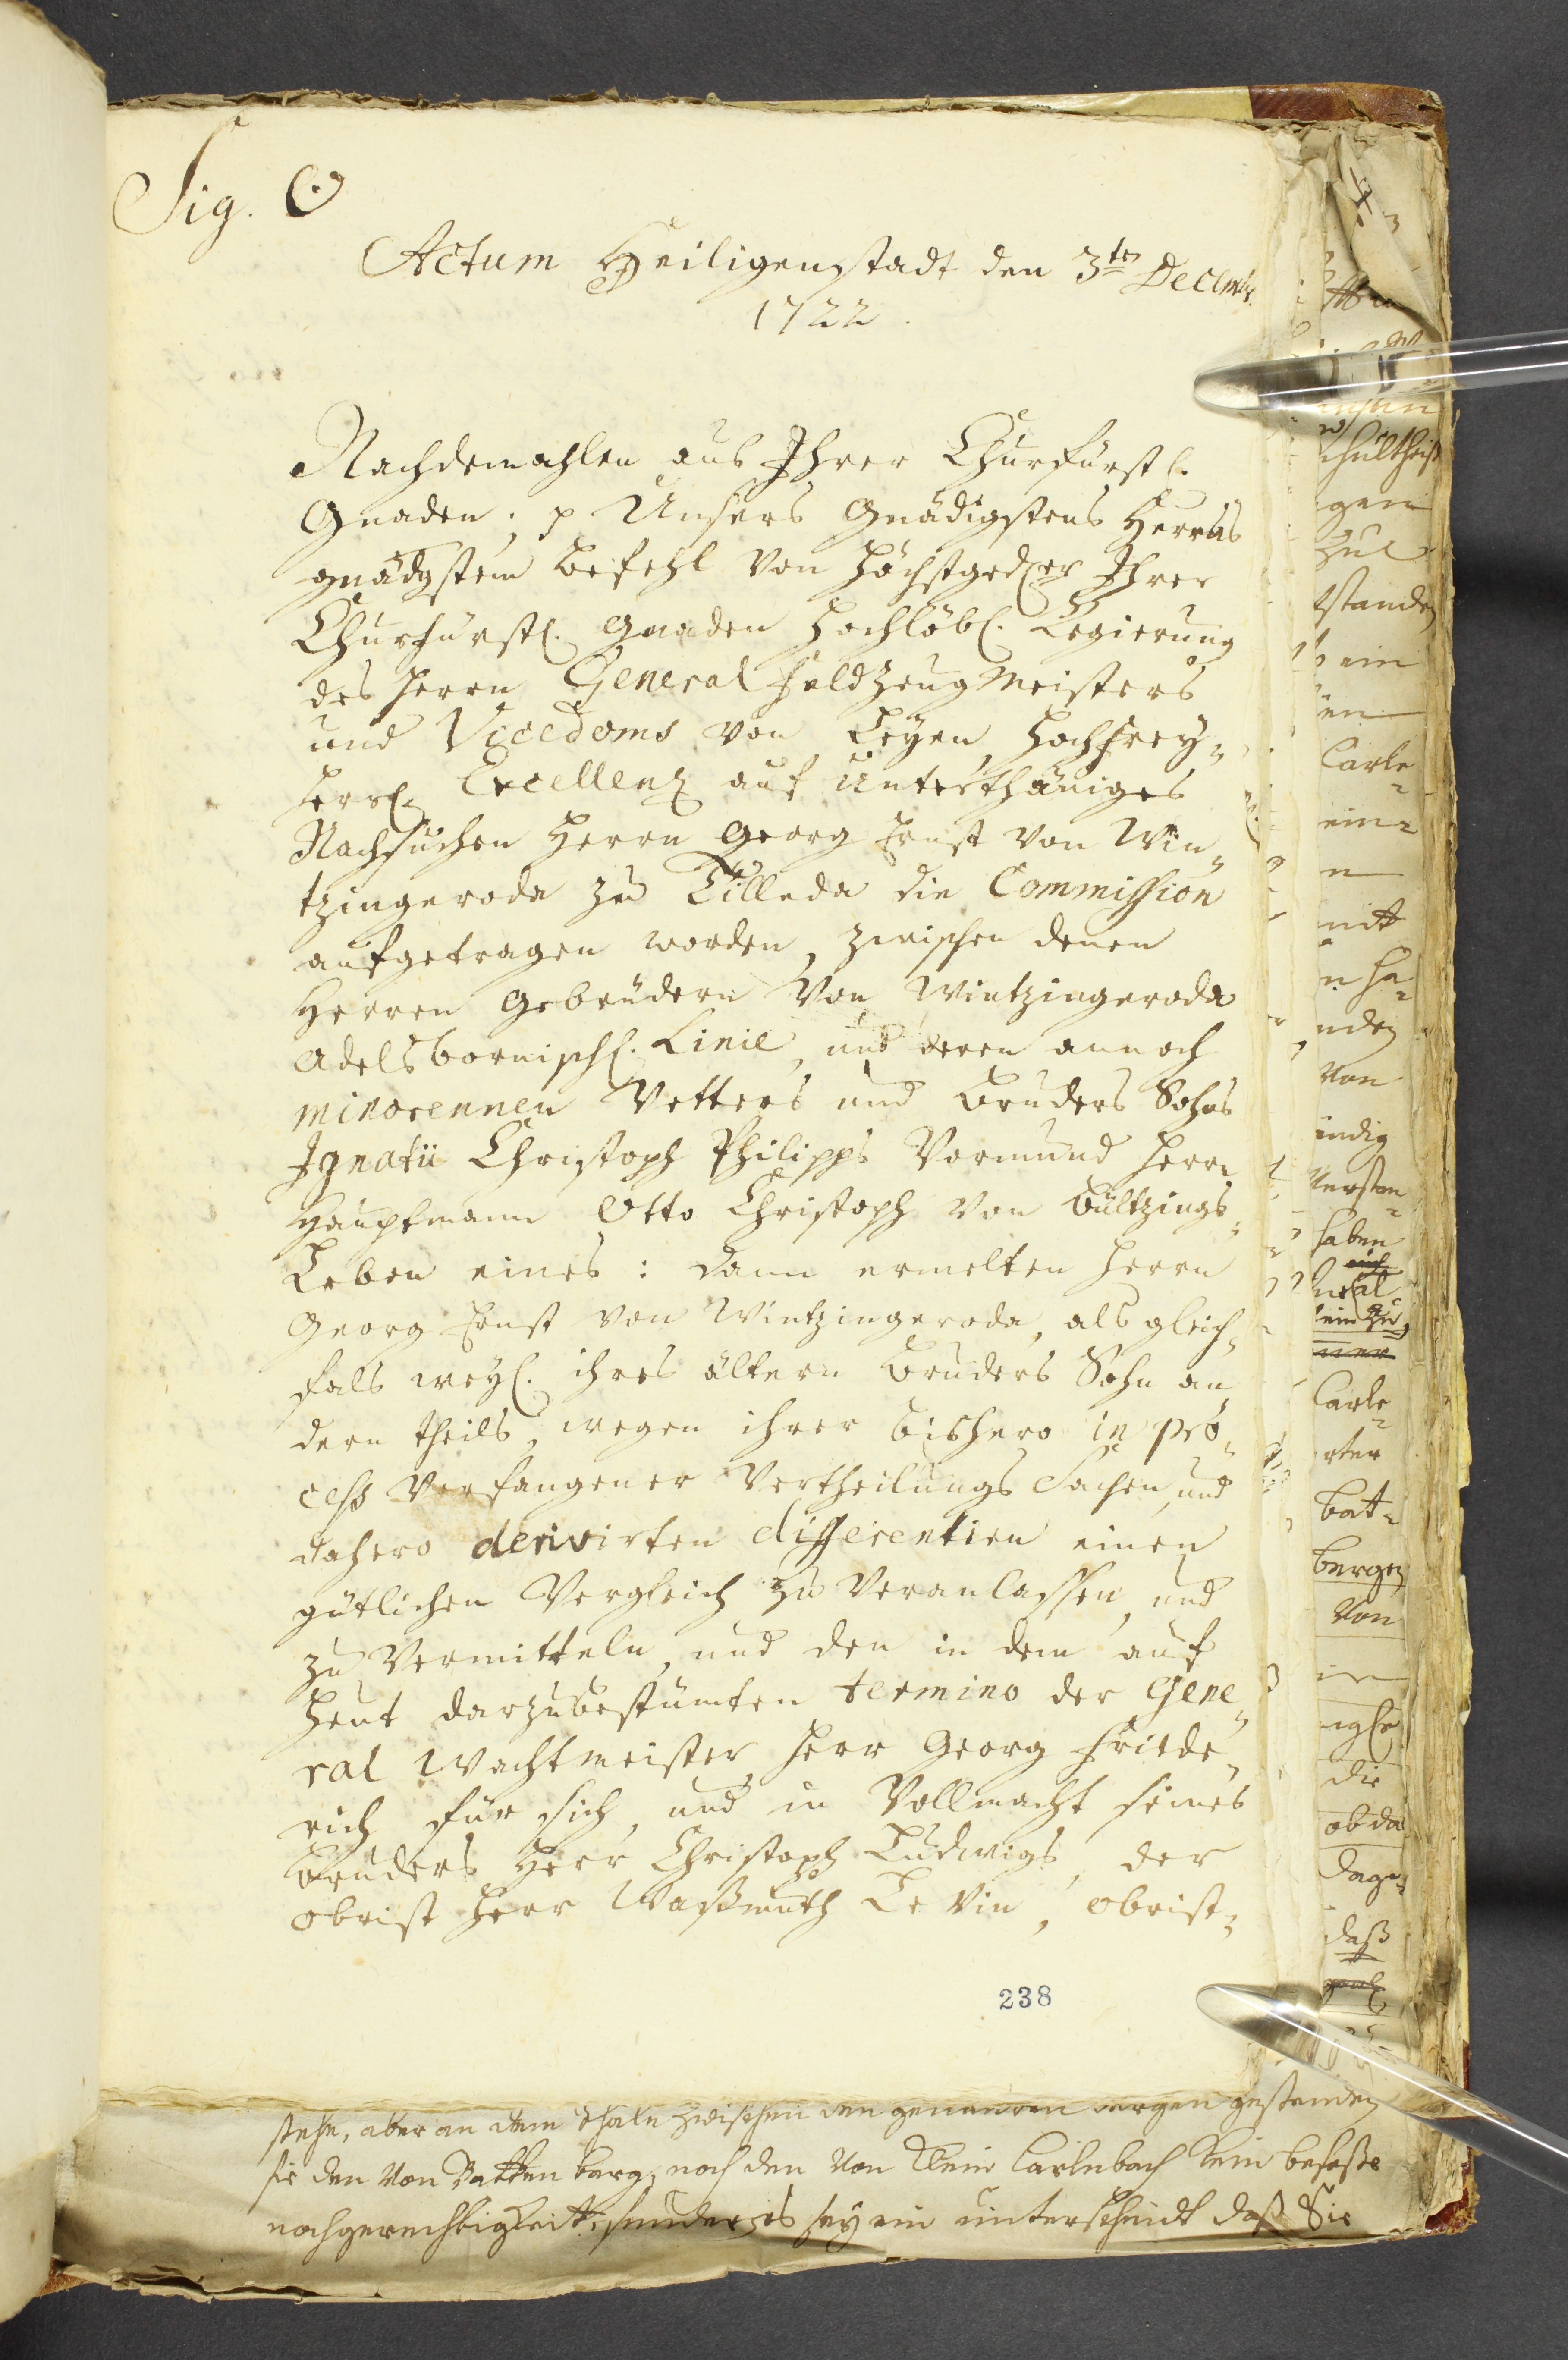 Sig. O
Actum Heiligenstadt den 3ten Decembr.
1722.
Nachdemahlen aus Ihrer Churfürstl.
Gnaden p Unsers Gnädigstens Herrns
gnädgstem Befehl von Höchstgedr. Ihrer
Churfürstl. Gnaden Hochlöbl. Regierung
des Herrn General Feldzeug Meisters
und Vicedoms von Leyen Hochfrey-
herrl. Excellenz auf Unterthäniges
Nachsuchen Herrn Georg Ernst von Win-
tzingeroda zu Tilleda die Commission
aufgetragen worden, zwischen denen
Herren Gebrüdern von Wintzingeroda
Adelsbornischl. Linie, und deren annoch
minorennen Vetters und Bruders Sohns
Ignatii Christoph Philipps Vormund Herrn
Hauptmann Otto Christoph von Bültzings-
Leben eines: dann ermelten Herrn
Georg Ernst von Wintzingeroda, als gleich-
fals weyl. ihres ältern Bruders Sohn an
dern theils, wegen ihrer bishero in pro-
cess verfangener Vertheilungs Sachen, und
dahero derivirten differentien einen
gütlichen Vergleich zu veranlassen, und
zu vermitteln, und den in dem auf
heut darzubestimten termino der Gene-
ral Wachtmeister Herr Georg Friede-
rich für sich, und in Vollmacht seines
Bruders Herr Christoph Ludwigs, der
Obrist Herr Waßmuth Levin, Obrist-
238
stehe, aber an dem thale zwischen den genanten bergen gestanden
sie den von Battenberg, noch den von Klein Carlebach kein
nochgerechtigkeit, sey ein unterscheidt daß Sie
schultheiß
gen
zue
standen
ein
en
Carle-
ein-
n
mitt
n ha-
nden
von
indig
verstan-
haben
ein zu
Carle-
rter
batt-
bergen
von
die
ob da
dage-
daß